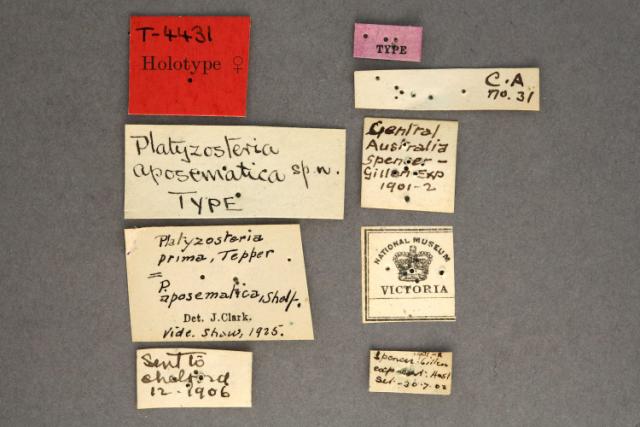 T-4431
Holotype ♀
Platyzosteria
aposematica sp.n.
TYPE
Platyzosteria
prima, Tepper
=
P.
aposematica, Shelf.
Det. J. Clark.
Vide. Shaw, 1925.
Sent to
Shelford
12-1906
TYPE
C.A
no. 31
Central
Australia
Spencer-
Gillen Exp
1901-2
NATIONAL MUSEUM
VICTORIA
Spencer-Gillen